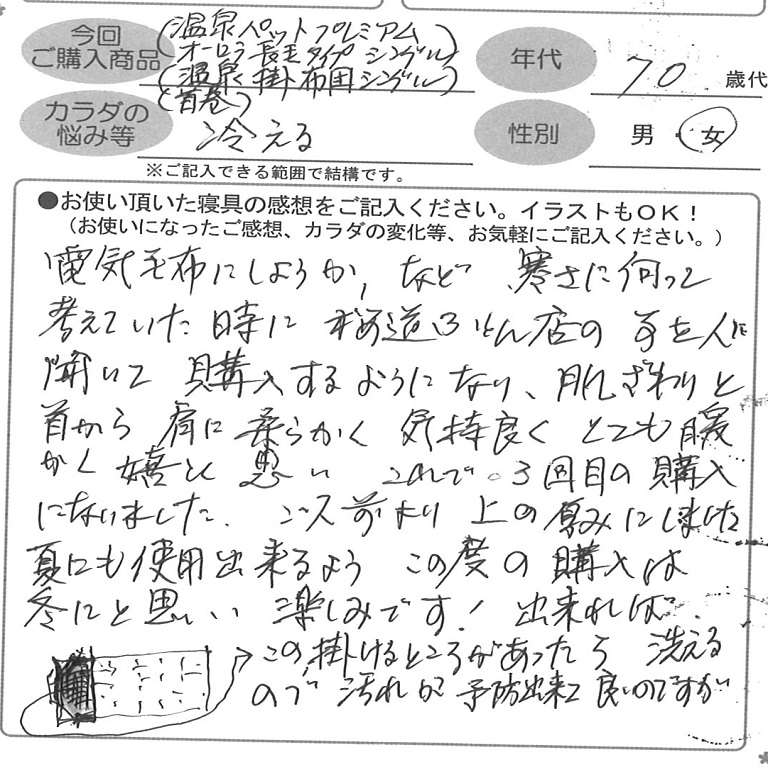 今回
ご購入商品
(温泉パットプレミアム
オーロラ長王タイプ シングル)
(温泉掛布団シングル)
(首巻)
年代
70 歳代
カラダの
悩み等
冷える
性別
男・女
※ご記入できる範囲で結構です。
●お使い頂いた寝具の感想をご記入ください。イラストもOK!
(お使いになったご感想、カラダの変化等、お気軽にご記入ください。)
電気毛布にしようか, など 寒さに何って
考えていた時に 桜道ふとん店の 事を人に
聞いて 購入するようになり、肌ざわりと
首から 肩に 柔らかく 気持良く とても暖
かく 嬉と 思い これで 3回目の購入
になりました. 以前より 上の厚みにしました
夏にも使用出来るよう この度の購入は
冬にと思い 楽しみです! 出来れば
この掛けるところがあったら 洗える
ので 汚れが 予防出来て良いのですが